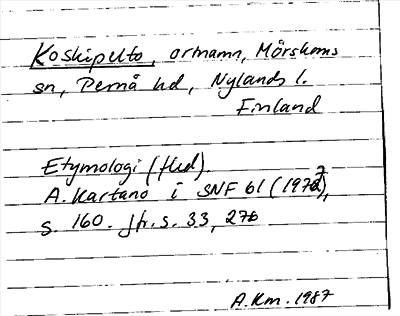 Koskipelto, ortnamn, Mörskoms
sn, Pernå hd, Nylands l.
Finland
Etymologi (fled).
A. Kartano i SNF 61 (1977),
s. 160. Jfr. s. 33, 276
A.Km. 1987